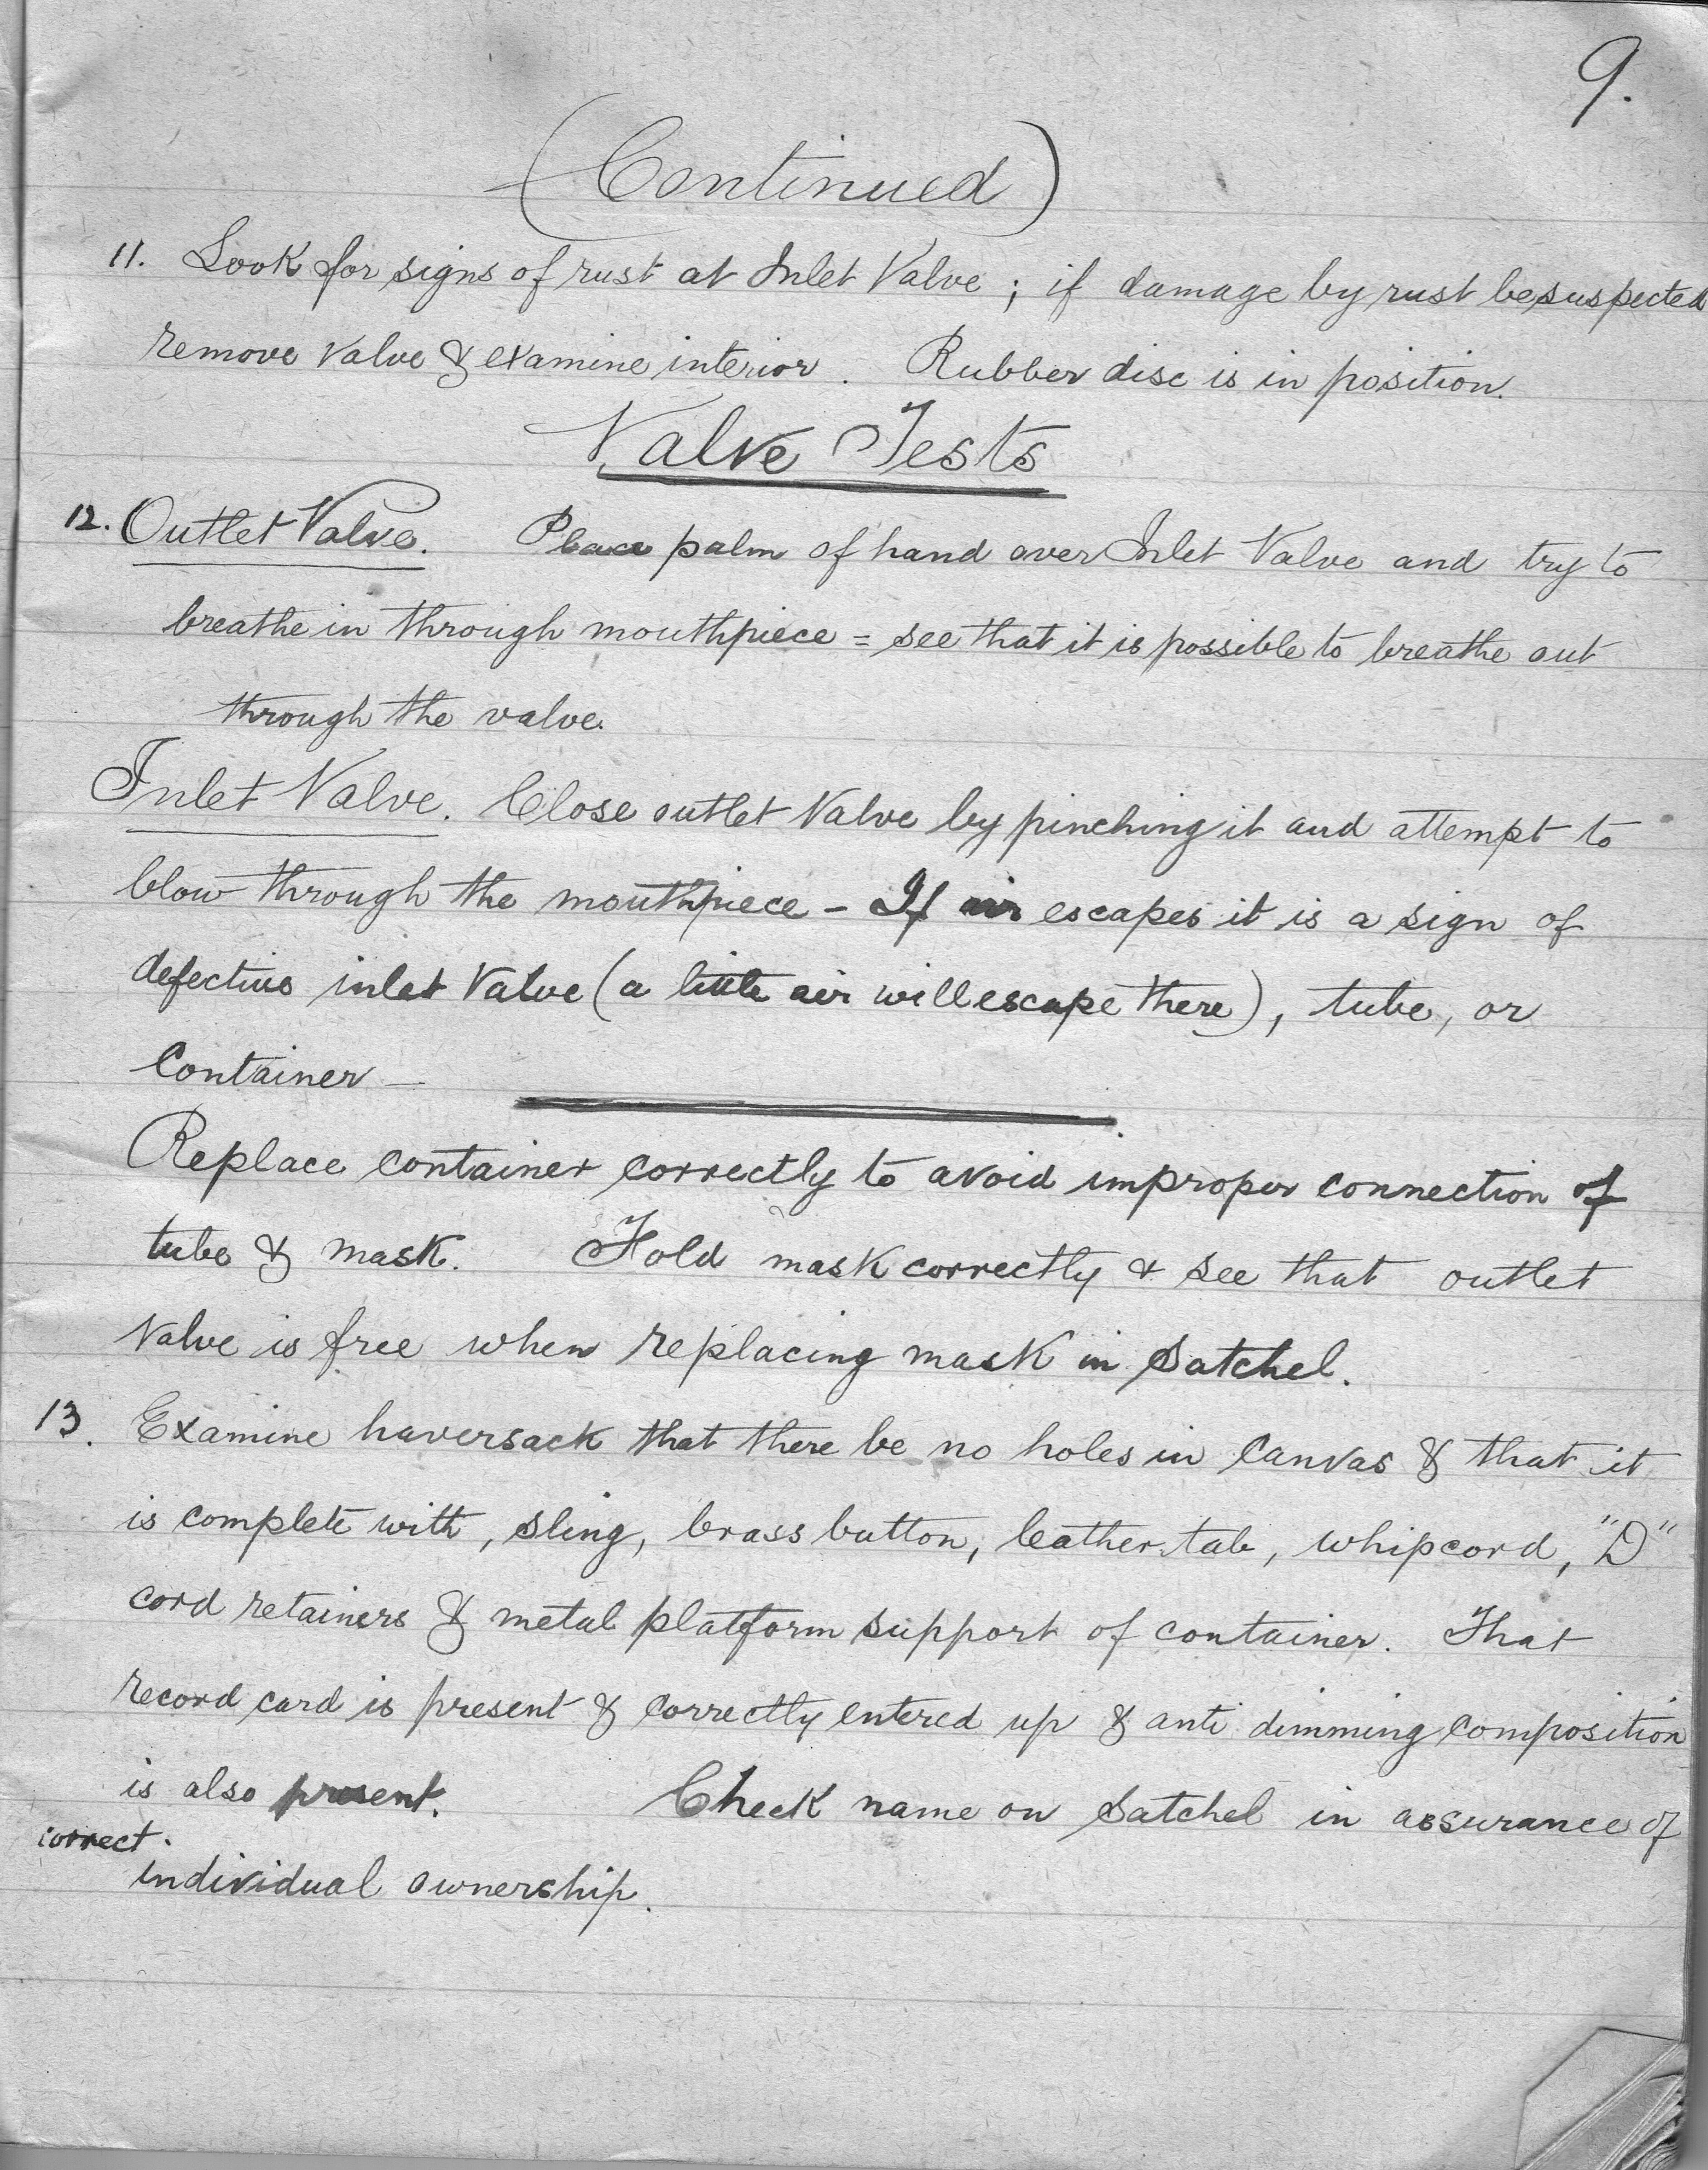 9.
(Continued)
11. Look for signs of rust at Inlet Valve; if damage by rust be suspected
remove valve & examine interior. Rubber disc is in position.
Valve Tests
12. Outlet Valve. Place palm of hand over Inlet Valve and try to
breathe in through mouthpiece = see that it is possible to breathe out
through the valve.
Inlet Valve. Close outlet Valve by pinching it and attempt to
blow through the mouthpiece - If air escapes it is a sign of
defective inlet Valve (a little air will escape there), tube, or
Container -
Replace container correctly to avoid improper connection of
tube & mask. Fold mask correctly & see that outlet
Valve is free when replacing mask in Satchel.
13. Examine haversack that there be no holes in canvas & that it
is complete with, sling, brass button, leather tab, whipcord, "D"
cord retainers & metal platform support of container. That
record card is present & correctly entered up & anti dimming composition
is also present. Check name on Satchel in assurance of
correct.
individual ownership.